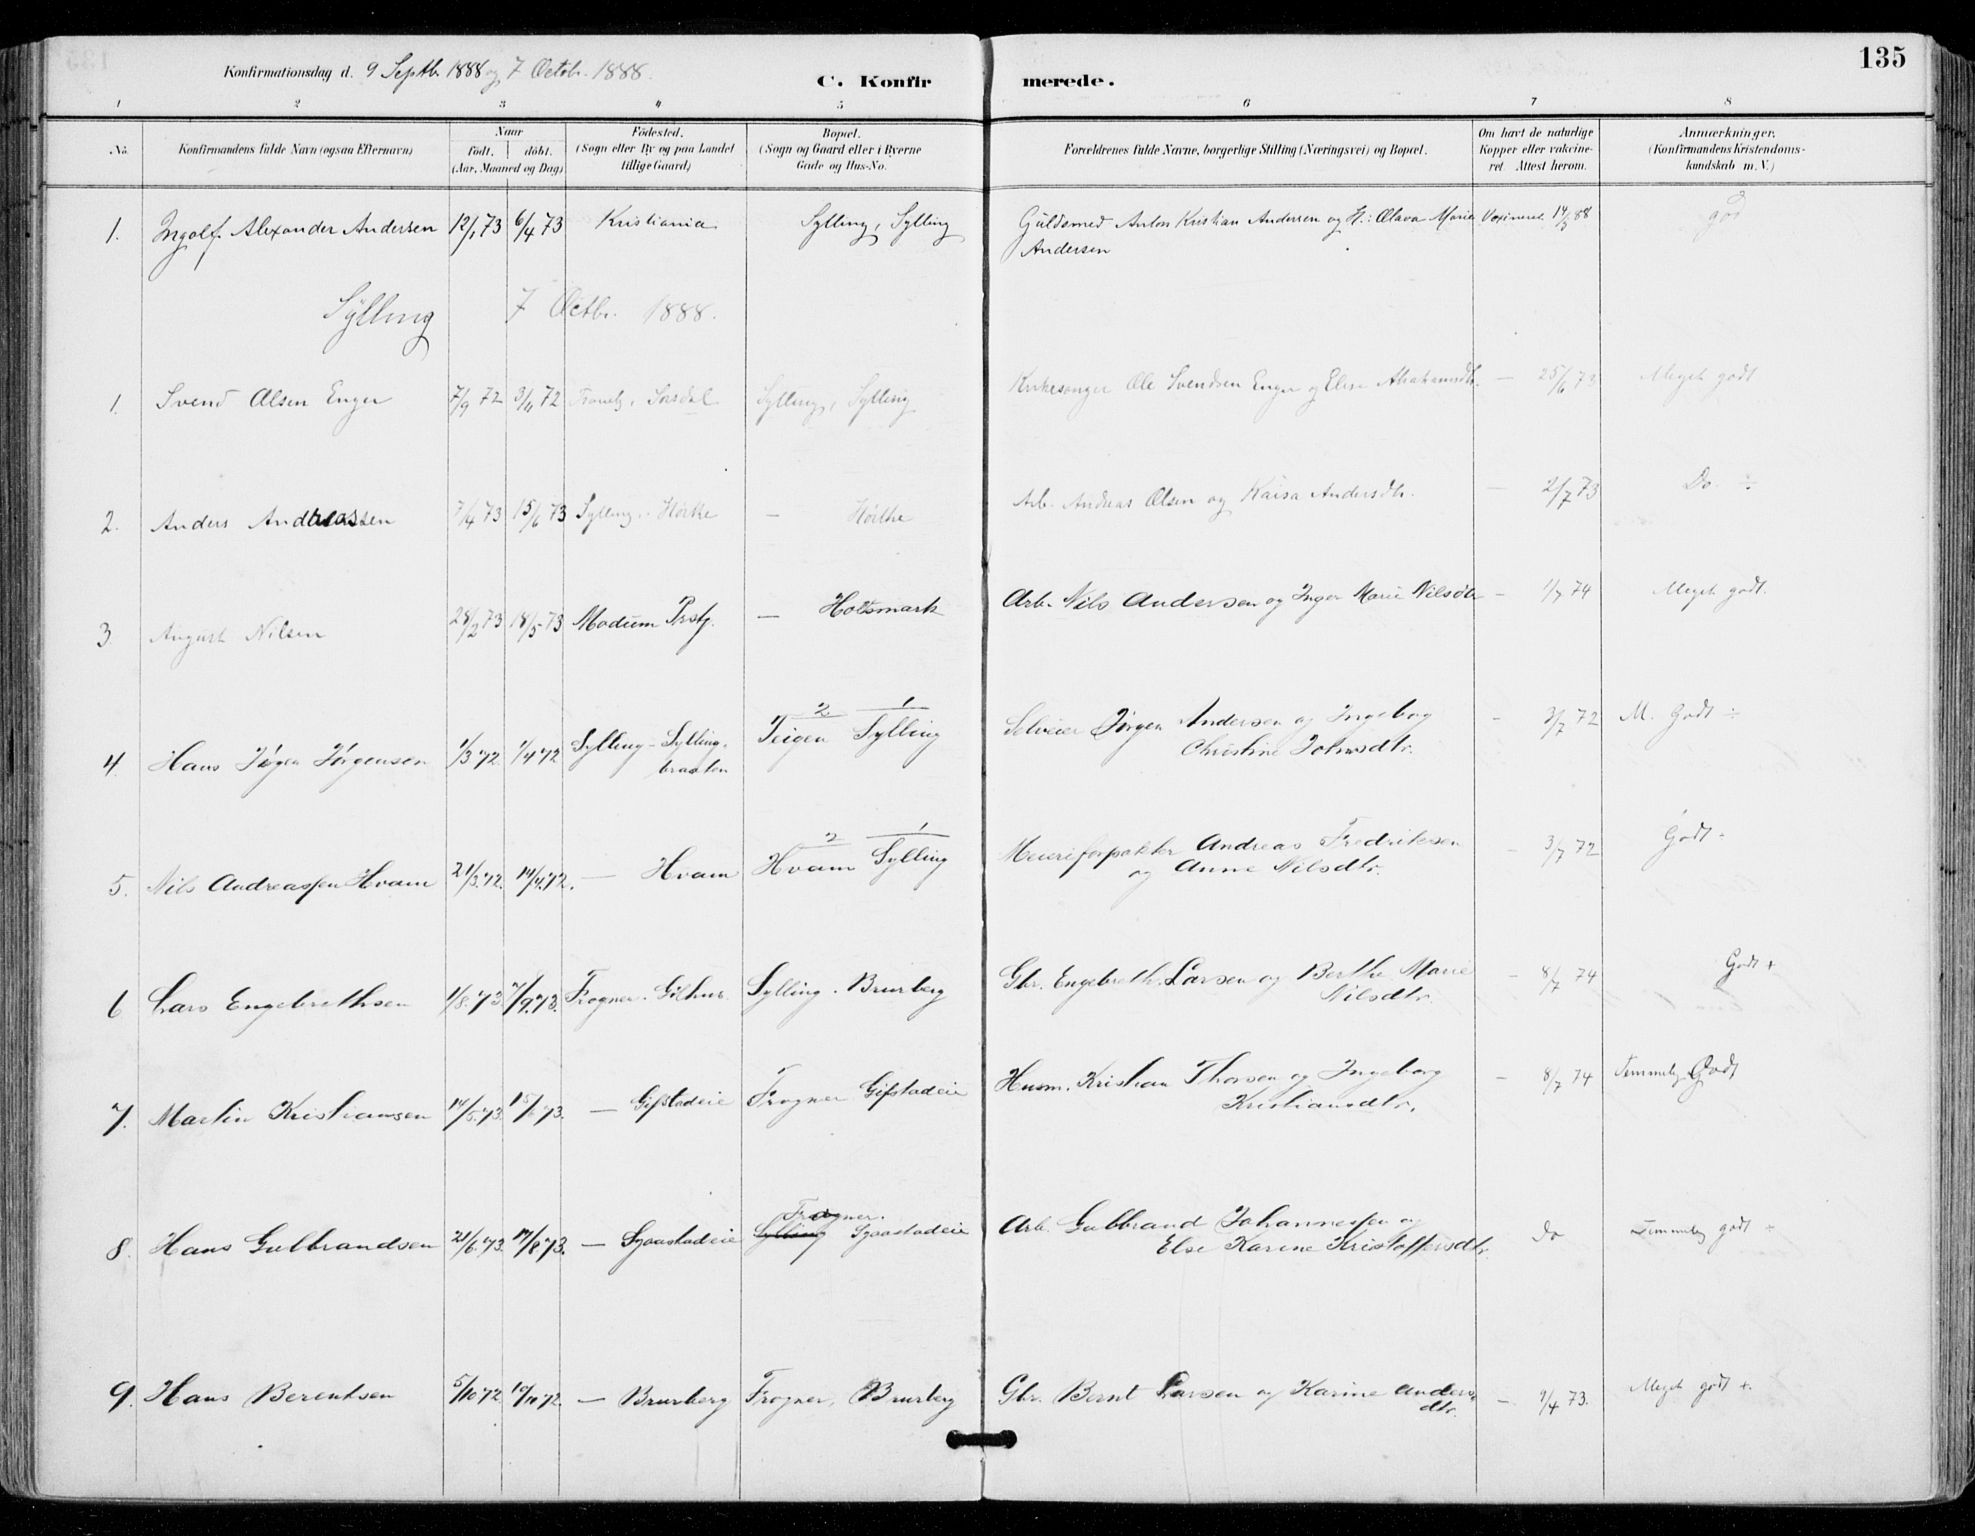 135
Konfirmationsdag d. 9 Septb. 1888 og 7 Octob. 1888.
C. Konfirmerede.
1 2 3 4 5 6 7 8
No. Konfirmandens fulde Navn (ogsaa Efternavn) Naar født. døbt. (Aar, Maaned og Dag) Fødested. (Sogn eller By og paa Landet tillige Gaard) Bopæl. (Sogn og Gaard eller i Byerne Gade og Hus-No. Forældrenes fulde Navne, borgerlige Stilling (Næringsvei) og Bopæl. Om havt de naturlige Kopper eller vakcineret. Attest herom. Anmærkninger. (Konfirmandens Kristendomskundskab m. V.)
1. Ingolf Alexander Andersen 12/1 73 6/4 73 Kristiania Sylling, Sylling Guldsmed Anton Kristian Andersen og H.: Olava Marie Vaxineret 14/3 88 god
Andersen
Sylling 7 Octbr. 1888.
1. Svend Olsen Enger 7/9 72 3/11 72 Sylling, Sylling Kirkesanger Ole Svendsen Enger og Elise Abrahamsdtr. — 25/6 73 Meget godt
2. Anders Andreassen 7/4 73 15/6 73 Sylling. Hørthe — Hørthe Arb. Andreas Olsen og Kaisa Andersdtr. — 2/7 73 Do ÷
3 August Nilsen 28/2 73 18/5 73 Modum Prstgj. — Holtsmark Arb. Nils Andersen og Inger Marie Nilsdtr — 1/7 74 Meget godt.
4 Hans Jørgen Jørgensen 1/3 72 1/4 72 Sylling - Syllingbraaten 2 Teigen 1 Sylling Selveier Jørgen Andersen og Ingeborg - 3/7 72 M. Godt ÷
Christine Johnsdtr.
5. Nils Andreassen Hvam 21/3 72. 14/4 72. — Hvam 2 Hvam 1 Sylling Meieriforpakter Andreas Fredriksen - 3/7 72 Godt -
og Anne Nilsdtr.
6 Lars Engebrethsen 1/8 73 7/9 73. Frogner. Gilhus. Sylling. Brurberg Gbr. Engebreth Larsen og Berthe Marie - 8/7 74 Godt +
Nilsdtr.
7. Martin Kristiansen 14/5 73. 15/6 73. — Gifstadeie Frogner Gifstadeie Husm. Kristian Thorsen og Ingeborg - 8/7 74 Temmelig Godt
Kristiansdtr.
8. Hans Gulbrandsen 21/6 73. 17/8 73. — Sjaastadeie Sylling Frogner. Sjaastadeie Arb. Gulbrand Johannessen og Do Temmelig godt ÷
Else Karine Kristoffersdtr.
9. Hans Berentsen 5/10 72 10/11 72. — Brurberg Frogner, Brurberg Gbr. Bernt Larsen og Karine Anders- — 9/4 73. Meget godt +.
dtr.